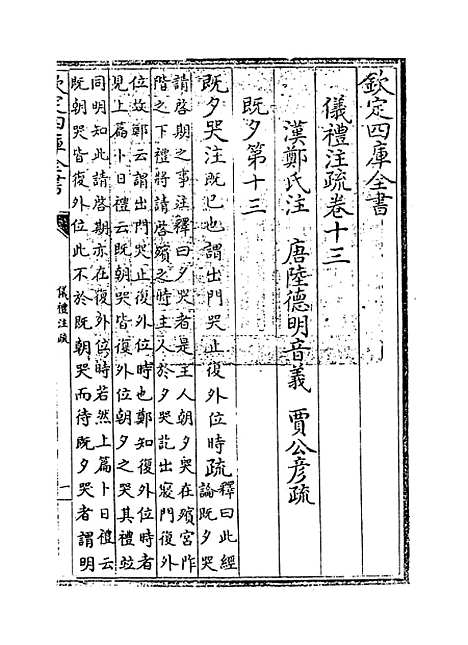 欽定四庫全書
儀禮注疏卷十三
漢鄭氏注 唐陸德明音義 賈公彥疏
既夕第十三
既夕哭注既已也謂出門哭止復外位時疏釋曰此經
論既夕哭
請啓期之事注釋曰夕哭者是主人朝夕哭在殯宮阼
階之下禮將請啓殯之時主人於夕哭訖出寢門復外
位故鄭云謂出門哭止復外位時也鄭知復外位時者
見上篇卜日禮云既朝哭皆復外位朝夕之哭其禮竝
同明知此請啓期亦在復外位時若然上篇卜日禮云
既朝哭皆復外位此不於既朝哭而待既夕哭者謂明
欽定四庫全書
儀禮注疏
一